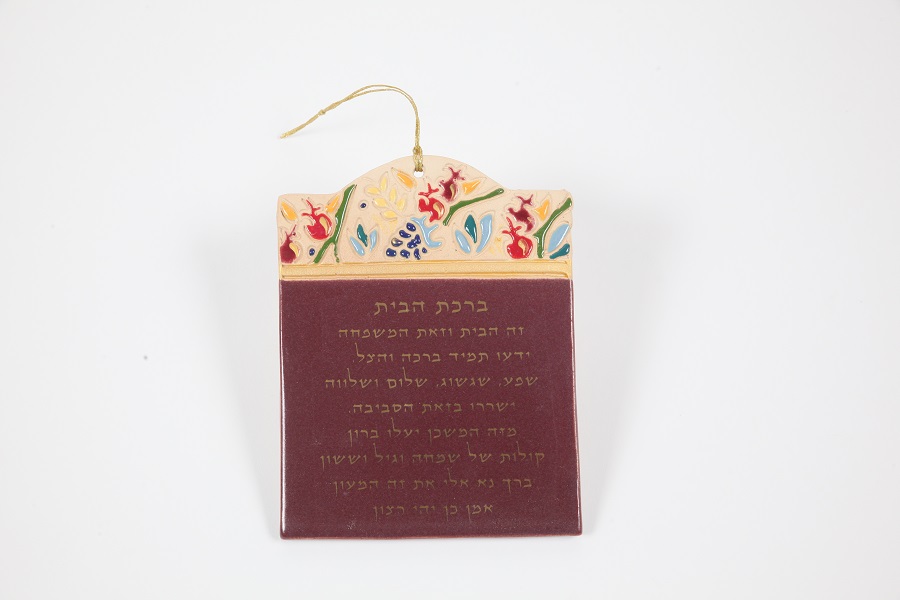 ברכת הבית
זה הבית וזאת המשפחה
ידעו תמיד ברכה והצל.
שפע, שגשוג, שלום ושלווה
ישררו בזאת הסביבה.
מזה המשכן יעלו ברון
קולות של שמחה וגיל וששון
ברך נא אלי את זה המעון
אמן כן יהי רצון